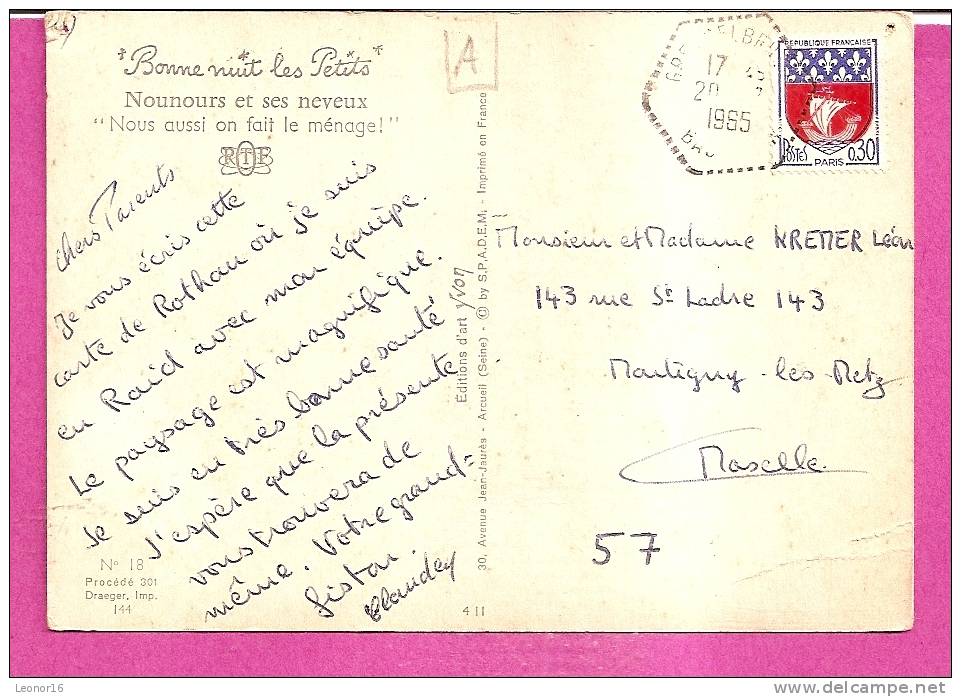 Bonne nuit les Petits
Nounours et ses neveux
"Nous aussi on fait le ménage!"
RTF
chers Parents
Je vous écris cette
carte de Rothau où je suis
en Raid avec mon équipe.
Le paysage est magnifique.
Je suis en très bonne santé
J'espère que la présente
vous trouvera de
même. Votre grand-
fiston.
N° 18
Procédé 301
Draeger, Imp.
144
411
Éditions d'art Yvon
30, Avenue Jean-Jaurès - Arcueil (Seine) - © by S.P.A.D.E.M. - Imprimé en France
A
17
20
1965
BAS
REPUBLIQUE FRANÇAISE
POSTES
PARIS
0,30
Monsieur et Madame KREMER Léon
143 rue St Ladre 143
Montigny-les-Metz
Moselle
57
Leonor16
delcampe.net